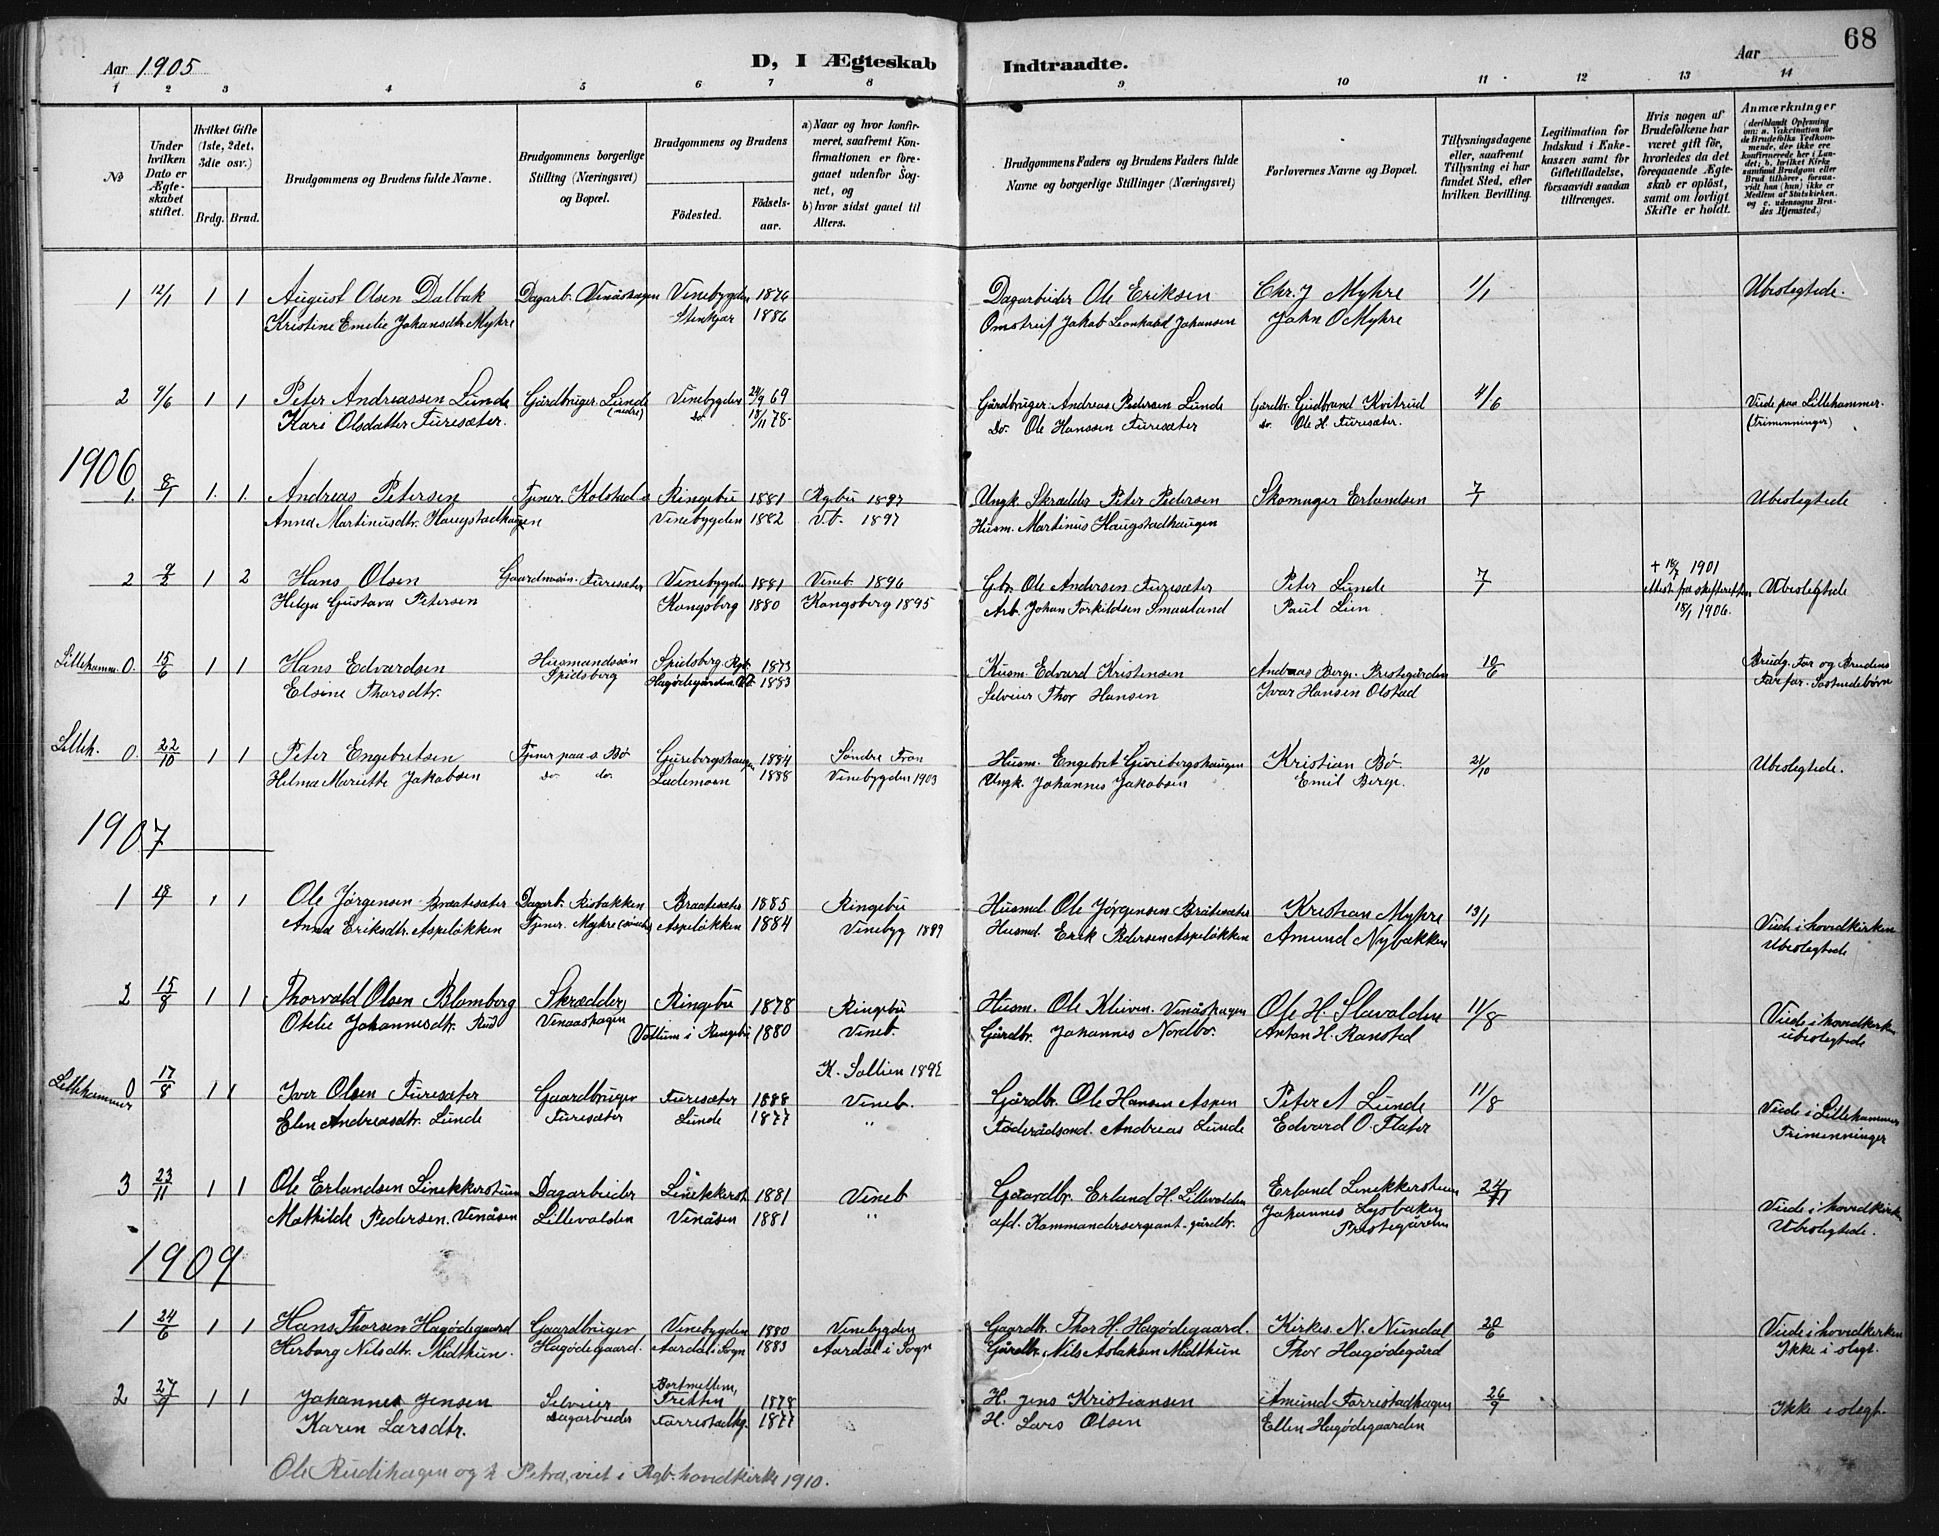 Aar 1905
D, I Ægteskab Indtraadte.
Aar
68
1 2 3 4 5 6 7 8 9 10 11 12 13 14
No
Under hvilken Dato er Ægteskabet stiftet.
Hvilket Gifte (1ste, 2det, 3die osv.)
Brdg. Brud.
Brudgommens og Brudens fulde Navne.
Brudgommens borgerlige Stilling (Næringsvei) og Bopæl.
Brudgommens og Brudens
Födested.
Födselsaar.
a) Naar og hvor konfirmeret, saafremt Konfirmationen er foregaaet udenfor Sognet, og
b) hvor sidst gaaet til Alters.
Brudgommens Faders og Brudens Faders fulde Navne og borgerlige Stillinger (Næringsvei)
Forlovernes Navne og Bopæl.
Tillysningsdagene eller, saafremt Tillysning ei har fundet Sted, efter hvilken Bevilling.
Legitimation for Indskud i Enkekassen samt for Giftetilladelse, forsaavidt saadan tiltrænges.
Hvis nogen af Brudefolkene har været gift för, hvorledes da det foregaaende Ægteskab er oplöst, samt om lovligt Skifte er holdt.
Anmærkninger (deriblandt Oplysning om: a. Vakcination for de Brudefolks Vedkommende, der ikke ere konfirmerede her i Landet; b. hvilket Kirkesamfund Brudgom eller Brud tilhörer, forsaavidt han (hun) ikke er Medlem af Statskirken og c. udensogns Brudes Hjemsted.)
1 12/1 1 1 August Olsen Dalbak Dagarb. Venåshagen Venebygden 1876 Dagarbeider Ole Eriksen Chr. J Myhre 1/1 Ubeslegtede.
Kristine Emelie Johansdtr. Myhre Stenkjær 1886 Omstreif Jakob Leonhard Johansen John O Myhre
2 9/6 1 1 Peter Andreassen Lunde Gårdbruger Lunde (nedre) Venebygden 24/9 69 Gårdbruger Andreas Pedersen Lunde Gårdbr. Gudbrand Kvitrud 4/6 Viede paa Lillehammer.
Kari Olsdatter Furesæter. do. 18/11 78 Do. Ole Hanssen Furesæter do. Ole H. Furesæter. (Trimenninger)
1906
1. 8/1 1. 1. Andreas Petersen Tjener. Kolstad s. Ringebu 1881 Rgbu 1897 Ungk. Skrædder Peter Pedersen Skomager Erlandsen 7/1 Ubeslegtede
Anna Martinusdtr. Haugstadhaugen Venebygden 1882 V.b. 1897 Husm. Martinus Haugstadhaugen
2 9/2 1 2 Hans Olsen Gaardmanssøn. Furesæter Venebygden 1881 Veneb. 1896 Gbr. Ole Andersen Furesæter Peter Lunde 7/1 + 18/7 1901 Ubeslegtede
Helga Gustava Petersen Kongsberg 1880 Kongsberg 1895 Arb. Johan Torkildsen Smaaland Paul Lien Attest fra skifteretten 18/1 1906.
Lillehamm. 0. 15/6 1 1 Hans Edvardsen Husmandssøn Spidsberg Rgb. 1873 Husm. Edvard Kristensen Andreas Berge. Prestegården 10/6 Brudg. Far og Brudens
Elsine Thorsdtr. Spidsberg Hagødegården 1883 Selveier Thor Hansen Ivar Hansen Olstad Farfar. Søskendebørn
Lilleh. 0. 22/10 1 1 Peter Engebretsen Tjener paa s. Bø Gurebergshaugen 1884 Søndre Fron Husm. Engebret Guribergshaugen Kristian Bø 21/10 Ubeslegtede.
Helma Mariette Jakobsen do do. Lademoen 1888 Venebygden 1903 Ungk. Johannes Jakobsen Emil Berge.
1907
1 18/1 1 1 Ole Jørgensen Braatesæter Dagarb. Risbakken Braatesæter 1885 Ringebu Husmd. Ole Jørgensen Bråtesæter Kristian Myhre 13/1 Viede i hovedkirken
Anna Eriksdtr. Aspeløkken Tjener. Myhre (søndre) Aspeløkken 1884 Venebyg 1889 Husmd. Erik Pedersen Aspeløkken Amund Nybakken Ubeslegtede
2 15/8 1 1 Thorvald Olsen Blomberg Skrædder, Ringebu 1878 Ringebu Husm. Ole Kleiven. Venåshagen Ole H. Slavalden 11/8 Viede i hovedkirken
Otelie Johannesdtr. Rud Venaashagen Vållum i Ringebu 1880 Veneb. Gårdbr. Johannes Nordbo. Anton H. Ransted ubeslegtede
K. Sollien 1892
Lillehammer 0 17/8 1 1 Iver Olsen Furesæter Gaardbruger Furesæter 1888 Veneb. Gårdbr. Ole Hansen Aspen Peter A Lunde 11/8 Viede i Lillehammer
Elen Andreasdtr. Lunde Furesæter Lunde 1877 " Føderådsmd. Andreas Lunde Edvard O. Flater Trimenninger
3 23/11 1 1 Ole Erlandsen Linekkerstuen Dagarbeider Linekkerst. 1881 Veneb Gaardbr. Erland H. Lillevolden Erland Linekkerstuen 24/11 Viede i hovedkirken
Mathilde Pedersen. Venåsen Lillevolden Venåsen 1881 " afd. Kommandersergeant. gårdbr. Johannes Lysbaken Prestegården Ubeslegtede.
1909
1 24/6 1 1 Hans Thorsen Hagødegaard Gaardbruger Venebygden 1880 Venebygden Gaardbr. Thor H. Hagødegaard. Kirkes. N. Nundal 20/6 Viede i hovedkirken
Herborg Nilsdtr. Midthun. Hagødegaard. Aardal i Sogn 1883 Aardal i Sogn Gårdbr. Nils Aslaksen Midthun Thor Hagødegård Ikke i slegt.
2 27/9 1 1 Johannes Jensen Selveier Bortmellem, Fretten 1878 H. Jens Kristiansen Amund Forrestadhagen 26/9 Ikke i slegt.
Karen Larsdtr. Dagarbeider Forrestadhg. 1877 H. Lars Olsen Ellen Hagødegaarden
Ole Rudihagen og h Petra, viet i Rgb. hovedkirke 1910.